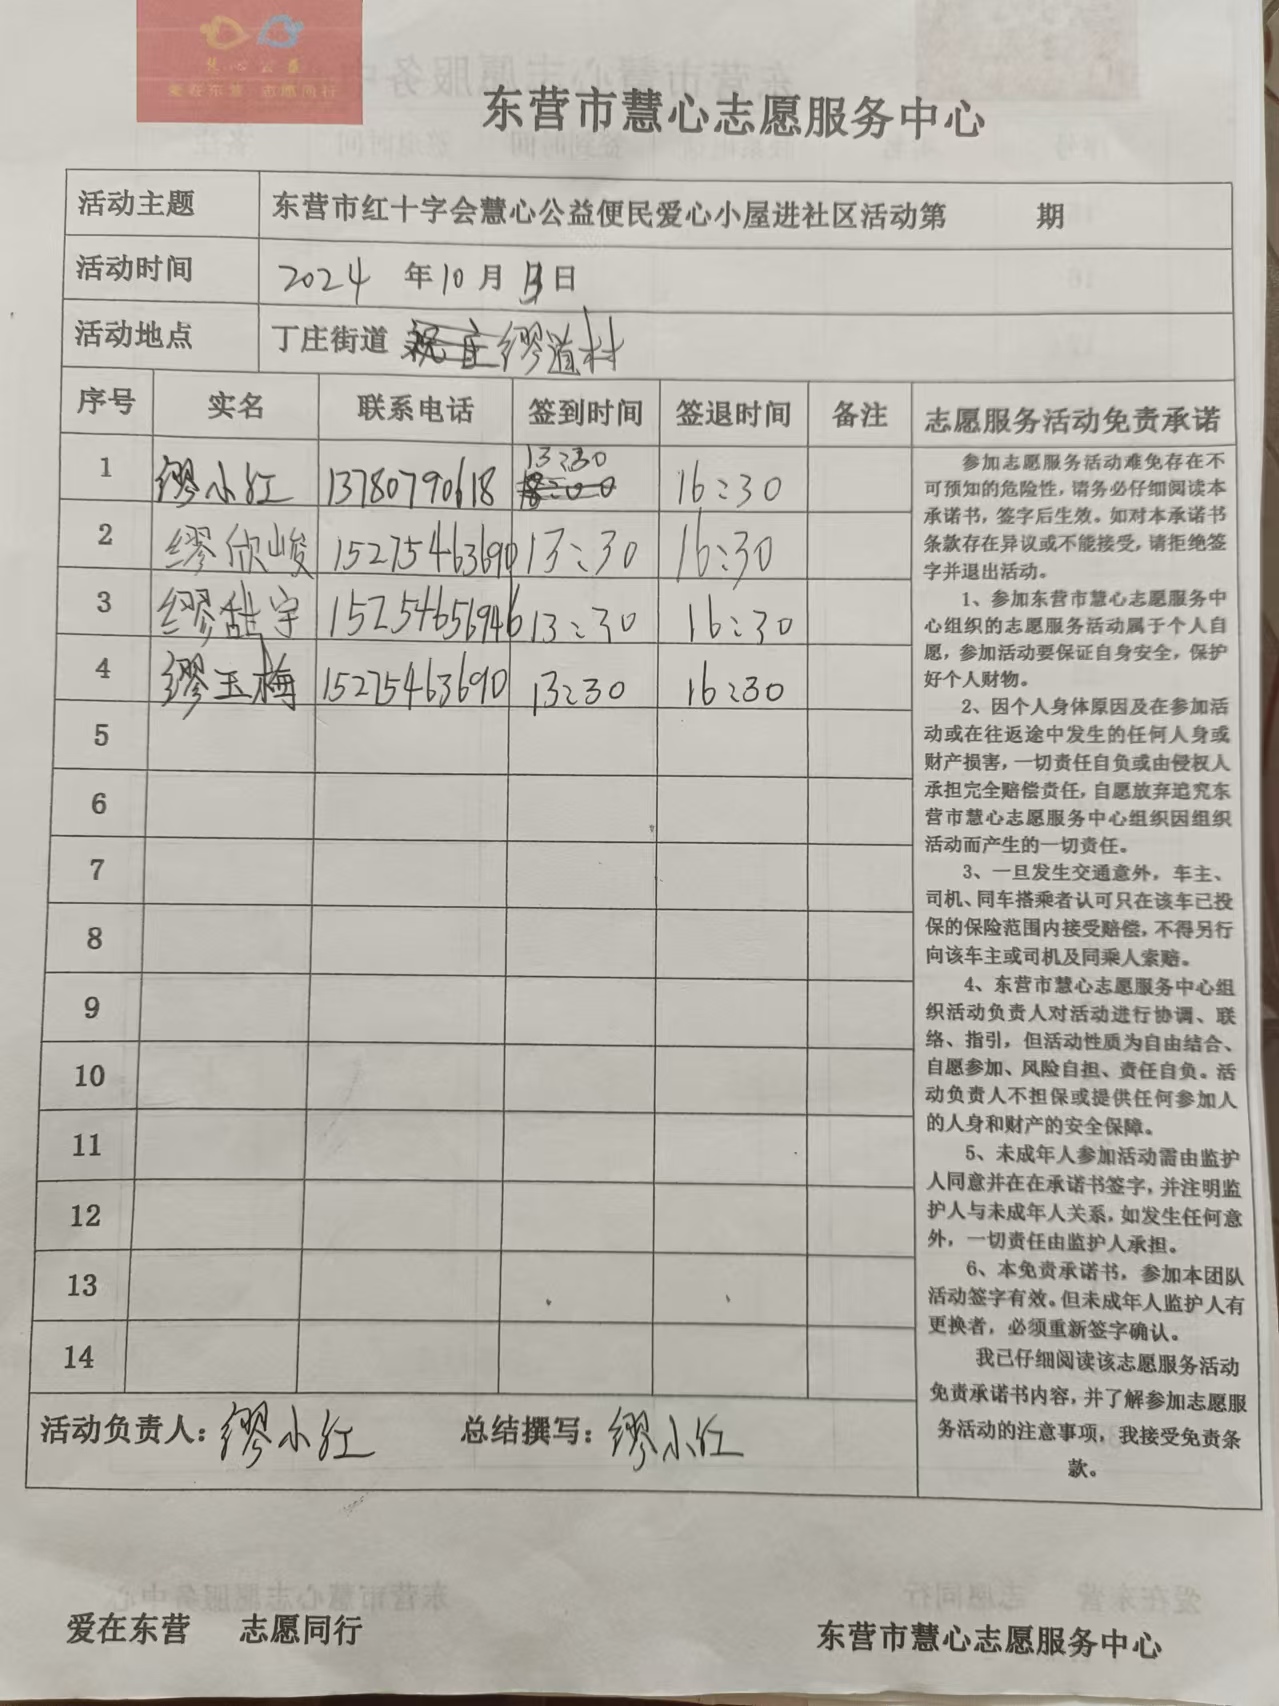 慧心公益
爱在东营 志愿同行
东营市慧心志愿服务中心
活动主题 东营市红十字会慧心公益便民爱心小屋进社区活动第 期
活动时间 2024 年 10 月 日
活动地点 丁庄街道 缪道村
序号 实名 联系电话 签到时间 签退时间 备注 志愿服务活动免责承诺
1 缪小红 13780790618 13:30 16:30
2 缪欣峻 15275463690 13:30 16:30
3 缪甜宇 15254656946 13:30 16:30
4 缪玉梅 15275463690 13:30 16:30
5
6
7
8
9
10
11
12
13
14
参加志愿服务活动难免存在不
可预知的危险性，请务必仔细阅读本
承诺书，签字后生效。如对本承诺书
条款存在异议或不能接受，请拒绝签
字并退出活动。
1、参加东营市慧心志愿服务中
心组织的志愿服务活动属于个人自
愿，参加活动要保证自身安全，保护
好个人财物。
2、因个人身体原因及在参加活
动或在往返途中发生的任何人身或
财产损害，一切责任自负或由侵权人
承担完全赔偿责任，自愿放弃追究东
营市慧心志愿服务中心组织因组织
活动而产生的一切责任。
3、一旦发生交通意外，车主、
司机、同车搭乘者认可只在该车已投
保的保险范围内接受赔偿，不得另行
向该车主或司机及同乘人索赔。
4、东营市慧心志愿服务中心组
织活动负责人对活动进行协调、联
络、指引，但活动性质为自由结合、
自愿参加、风险自担、责任自负。活
动负责人不担保或提供任何参加人
的人身和财产的安全保障。
5、未成年人参加活动需由监护
人同意并在在承诺书签字，并注明监
护人与未成年人关系，如发生任何意
外，一切责任由监护人承担。
6、本免责承诺书，参加本团队
活动签字有效。但未成年人监护人有
更换者，必须重新签字确认。
我已仔细阅读该志愿服务活动
免责承诺书内容，并了解参加志愿服
务活动的注意事项，我接受免责条
款。
活动负责人：缪小红 总结撰写：缪小红
爱在东营 志愿同行 东营市慧心志愿服务中心